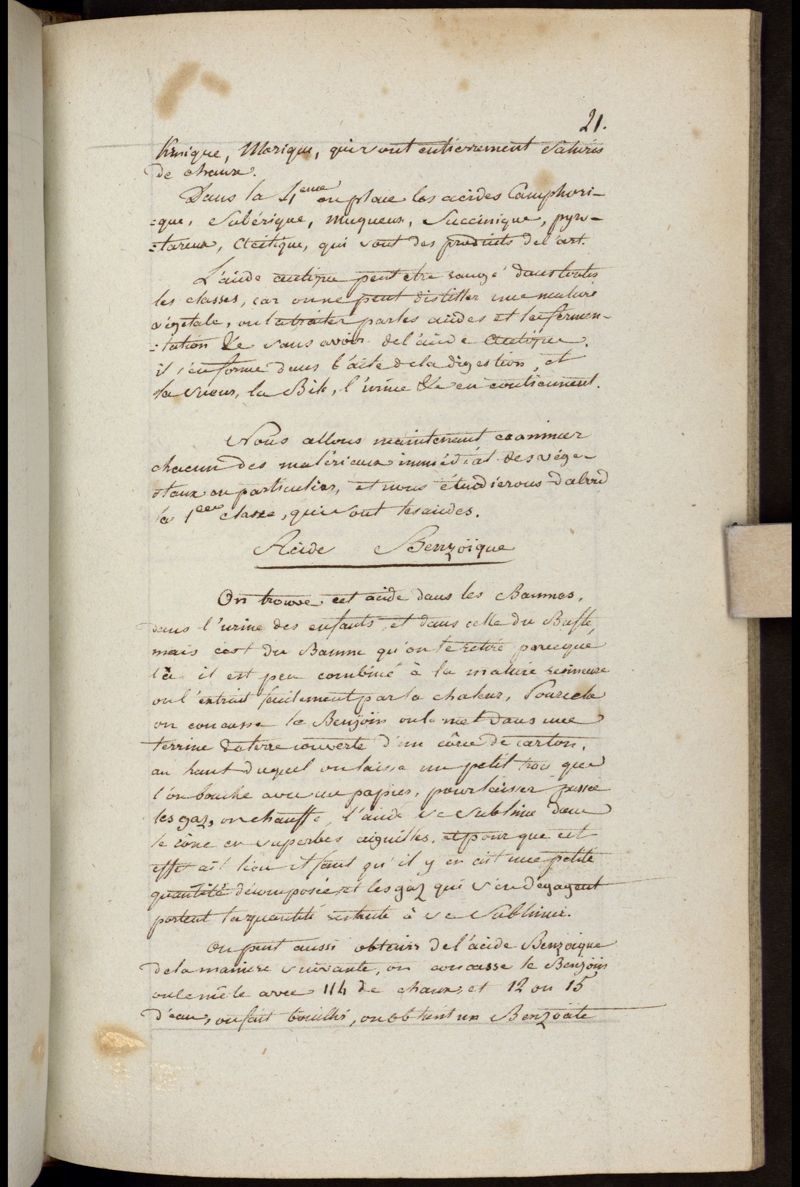 21.
Kinique, Morique, qui sont entierrement saturés
de chaux.
Dans la 4eme on place les acides Camphori-
=que, Subérique, muqueux, Succinique, pyro-
=tareux, acétique, qui sont des produits de l'art.
L'acide acétique peut etre rangé dans toutes
les classes, car on ne peut distiller une matiere
végétale, ou la traiter par les acides et la fermen-
=tation &e sans avoir de l'acide acétique.
il s'en forme dans l'acte de la digestion, et
la sueur, la Bile, l'urine &e en contiennent.
Nous allons maintenant examiner
chacun des matériaux immédiat des végé-
=taux en particulier, et nous étudierons d'abord
la 1ere classe, qui sont les acides.
Acide Benzöique
On trouve cet acide dans les Baumes,
dans l'urine des enfants et dans celle du Bufle,
mais c'est du Baume qu'on le retire parceque
là il est peu combiné à la matiere resineuse
on l'extrait facilement par la chaleur, Pour cela
on concasse le Benjoin on le met dans une
terrine de terre couverte d'un cône de carton,
au haut duquel on laisse un petit trou que
l'on bouche avec un papier, pour laisser passer
les gaz, on chauffe, l'acide se sublime dans
le cône en superbes aiguilles. et pour que cet
effet ait lieu il faut qu'il y en ait une petite
quantité décomposée et les gaz qui s'en dégagent
portent la quantité restante à se sublimer.
On peut aussi obtenir de l'acide Benzoique
de la maniere suivante, on concasse le Benjoin
on le mêle avec 1/4 de chaux, et 12 ou 15
d'eau, on fait bouillir, on obtient un Benzoate